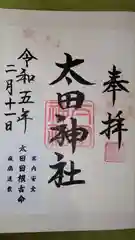 奉拝
太田神社
令和五年
二月十一日
家内安全
太田田根子命